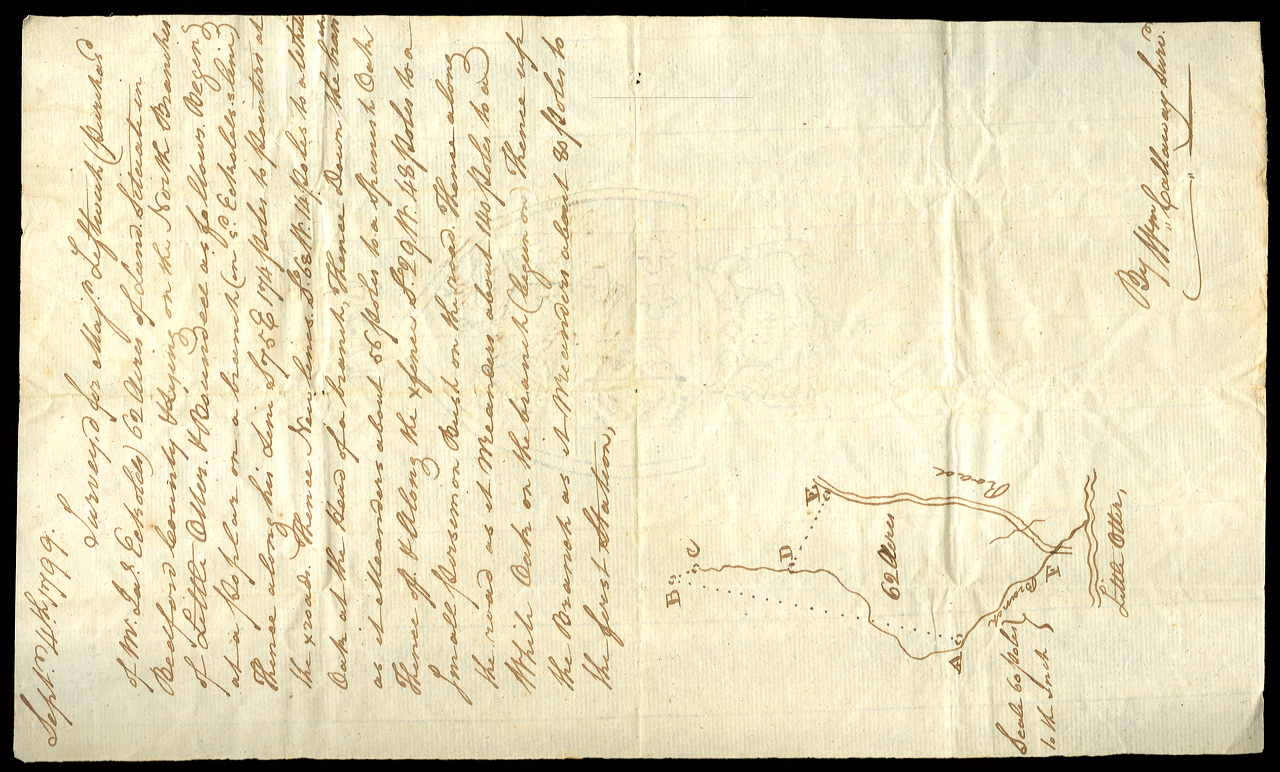 Sept. 24th, 1799.
Survey,d for Maj.r Leftwich (purchas'd
of Mr. Ja.s Echoles) 62 Acres of Land Situate in
Bedford County & Lying on the North Branches
of Little Otter. & Bounded as follows. Begin.g
at a poplar on a branch (in s.d Echoles's line)
Thence along his Line S. 75 E 174 poles to pointers at
the road. Thence New lines. S. 62 W. 14 poles to a White
Oak at the head of a branch, Thence Down the
as it Meanders about 56 poles to a Spanish Oak
Thence of & Along the fine S. 29 W. 43 poles to a
Small persimon Bush on the road. Thence along
the road as it Meanders about 140 poles to a
White Oak on the branch (begun on) Thence up
the Branch as it Meanders about 80 poles to
the first Station,
B
C
D
E
62 Acres
Road
A
Branch
F
Little Otter,
Scale 60 poles
to the Inch
By Wm Callaway Surv.